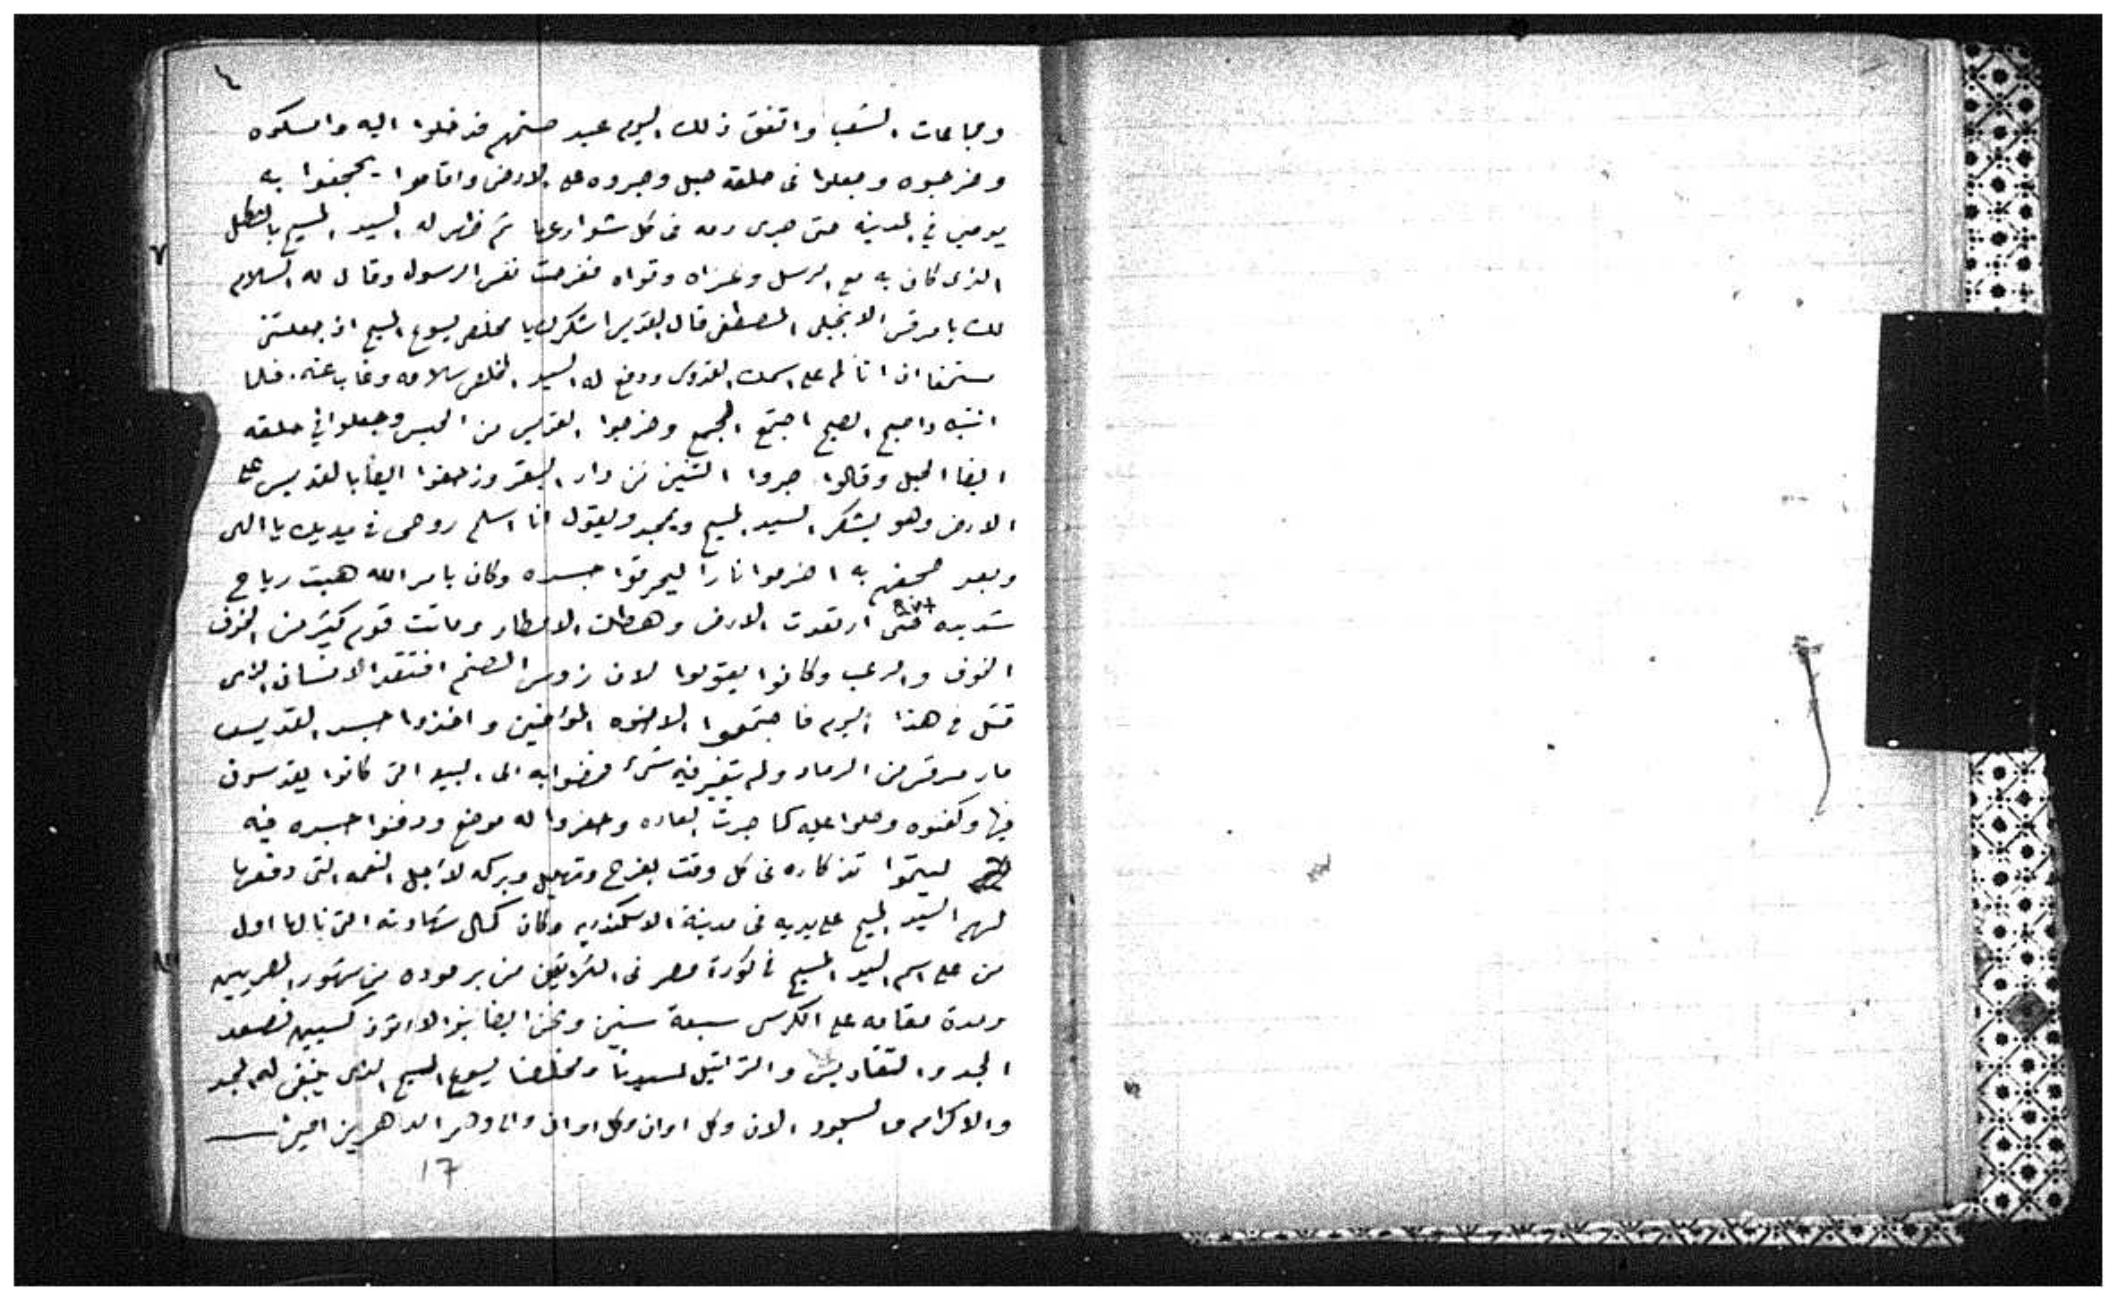 ٤
وجماعات الشعب واتفق ذلك اليوم عيد صنمهم فدخلوا اليه وامسكوه
وخرجوه وجعلوا فى حلقه حبل وجروه على الارض واقاموا يجحفوا به
يومين في المدينه حتى جرى دمه فى كل شوارعها ثم ظهر له السيد المسيح بالشكل
الذى كان به مع الرسل وعزاه وقواه ففرحت نفس الرسول وقال له السلام
لك يا مرقس الانجيلى المصطفى قال القديس اشكرك يا مخلصى يسوع المسيح اذ جعلتنى
مستحقا ان اتألم على اسمك القدوس ودفع له السيد المخلص سلامه وغاب عنه. فلما
انتبه واصبح الصبح اجتمع الجمع وخرجوا القديس من الحبس وجعلوا في حلقه
ايضا الحبل وقالوا جروا التنين من دار البقر وزحفوا ايضا بالقديس على
الارض وهو يشكر السيد المسيح ويمجد ويقول انا اسلم روحى فى يديك يا الهى
وبعد به اضرموا نارا ليحرقوا جسده وكان بامر الله هبت رياح
شديده حتى ارتعدت الارض وهطلت الامطار وماتت قوم كثير من الخوف
الخوف والرعب وكانوا يقولوا لان زوس الصنم افتقد الانسان الذى
قتل فى هذا اليوم فاجتمعوا الاخوه المؤمنين واخذوا جسد القديس
مار مرقس من الرماد ولم يتغير فيه شىء ومضوا به الى البيعه التى كانوا يقدسون
فيها وكفنوه وصلوا عليه كما جرت العاده وحفروا له موضع ودفنوا جسده فيه
ليتموا تذكاره فى كل وقت بفرح وتهليل وبركه لاجل النعمه التى دفعها
لهم السيد المسيح على يديه فى مدينة الاسكندريه وكان كمال شهادته التى نالها اول
من على اسم السيد المسيح فى كورة مصر فى الثلاثين من برموده من شهور المصريين
ومدة مقامه على الكرسى سبعة سنين ونحن ايضا بنو الارتوذكسيين نصعد
المجد والتقاديس والتراتيل لسيدنا ومخلصنا يسوع المسيح الذى ينبغى له المجد
والاكرام والسجود الان وكل اوان وكل اوان والى دهر الداهرين امين
17